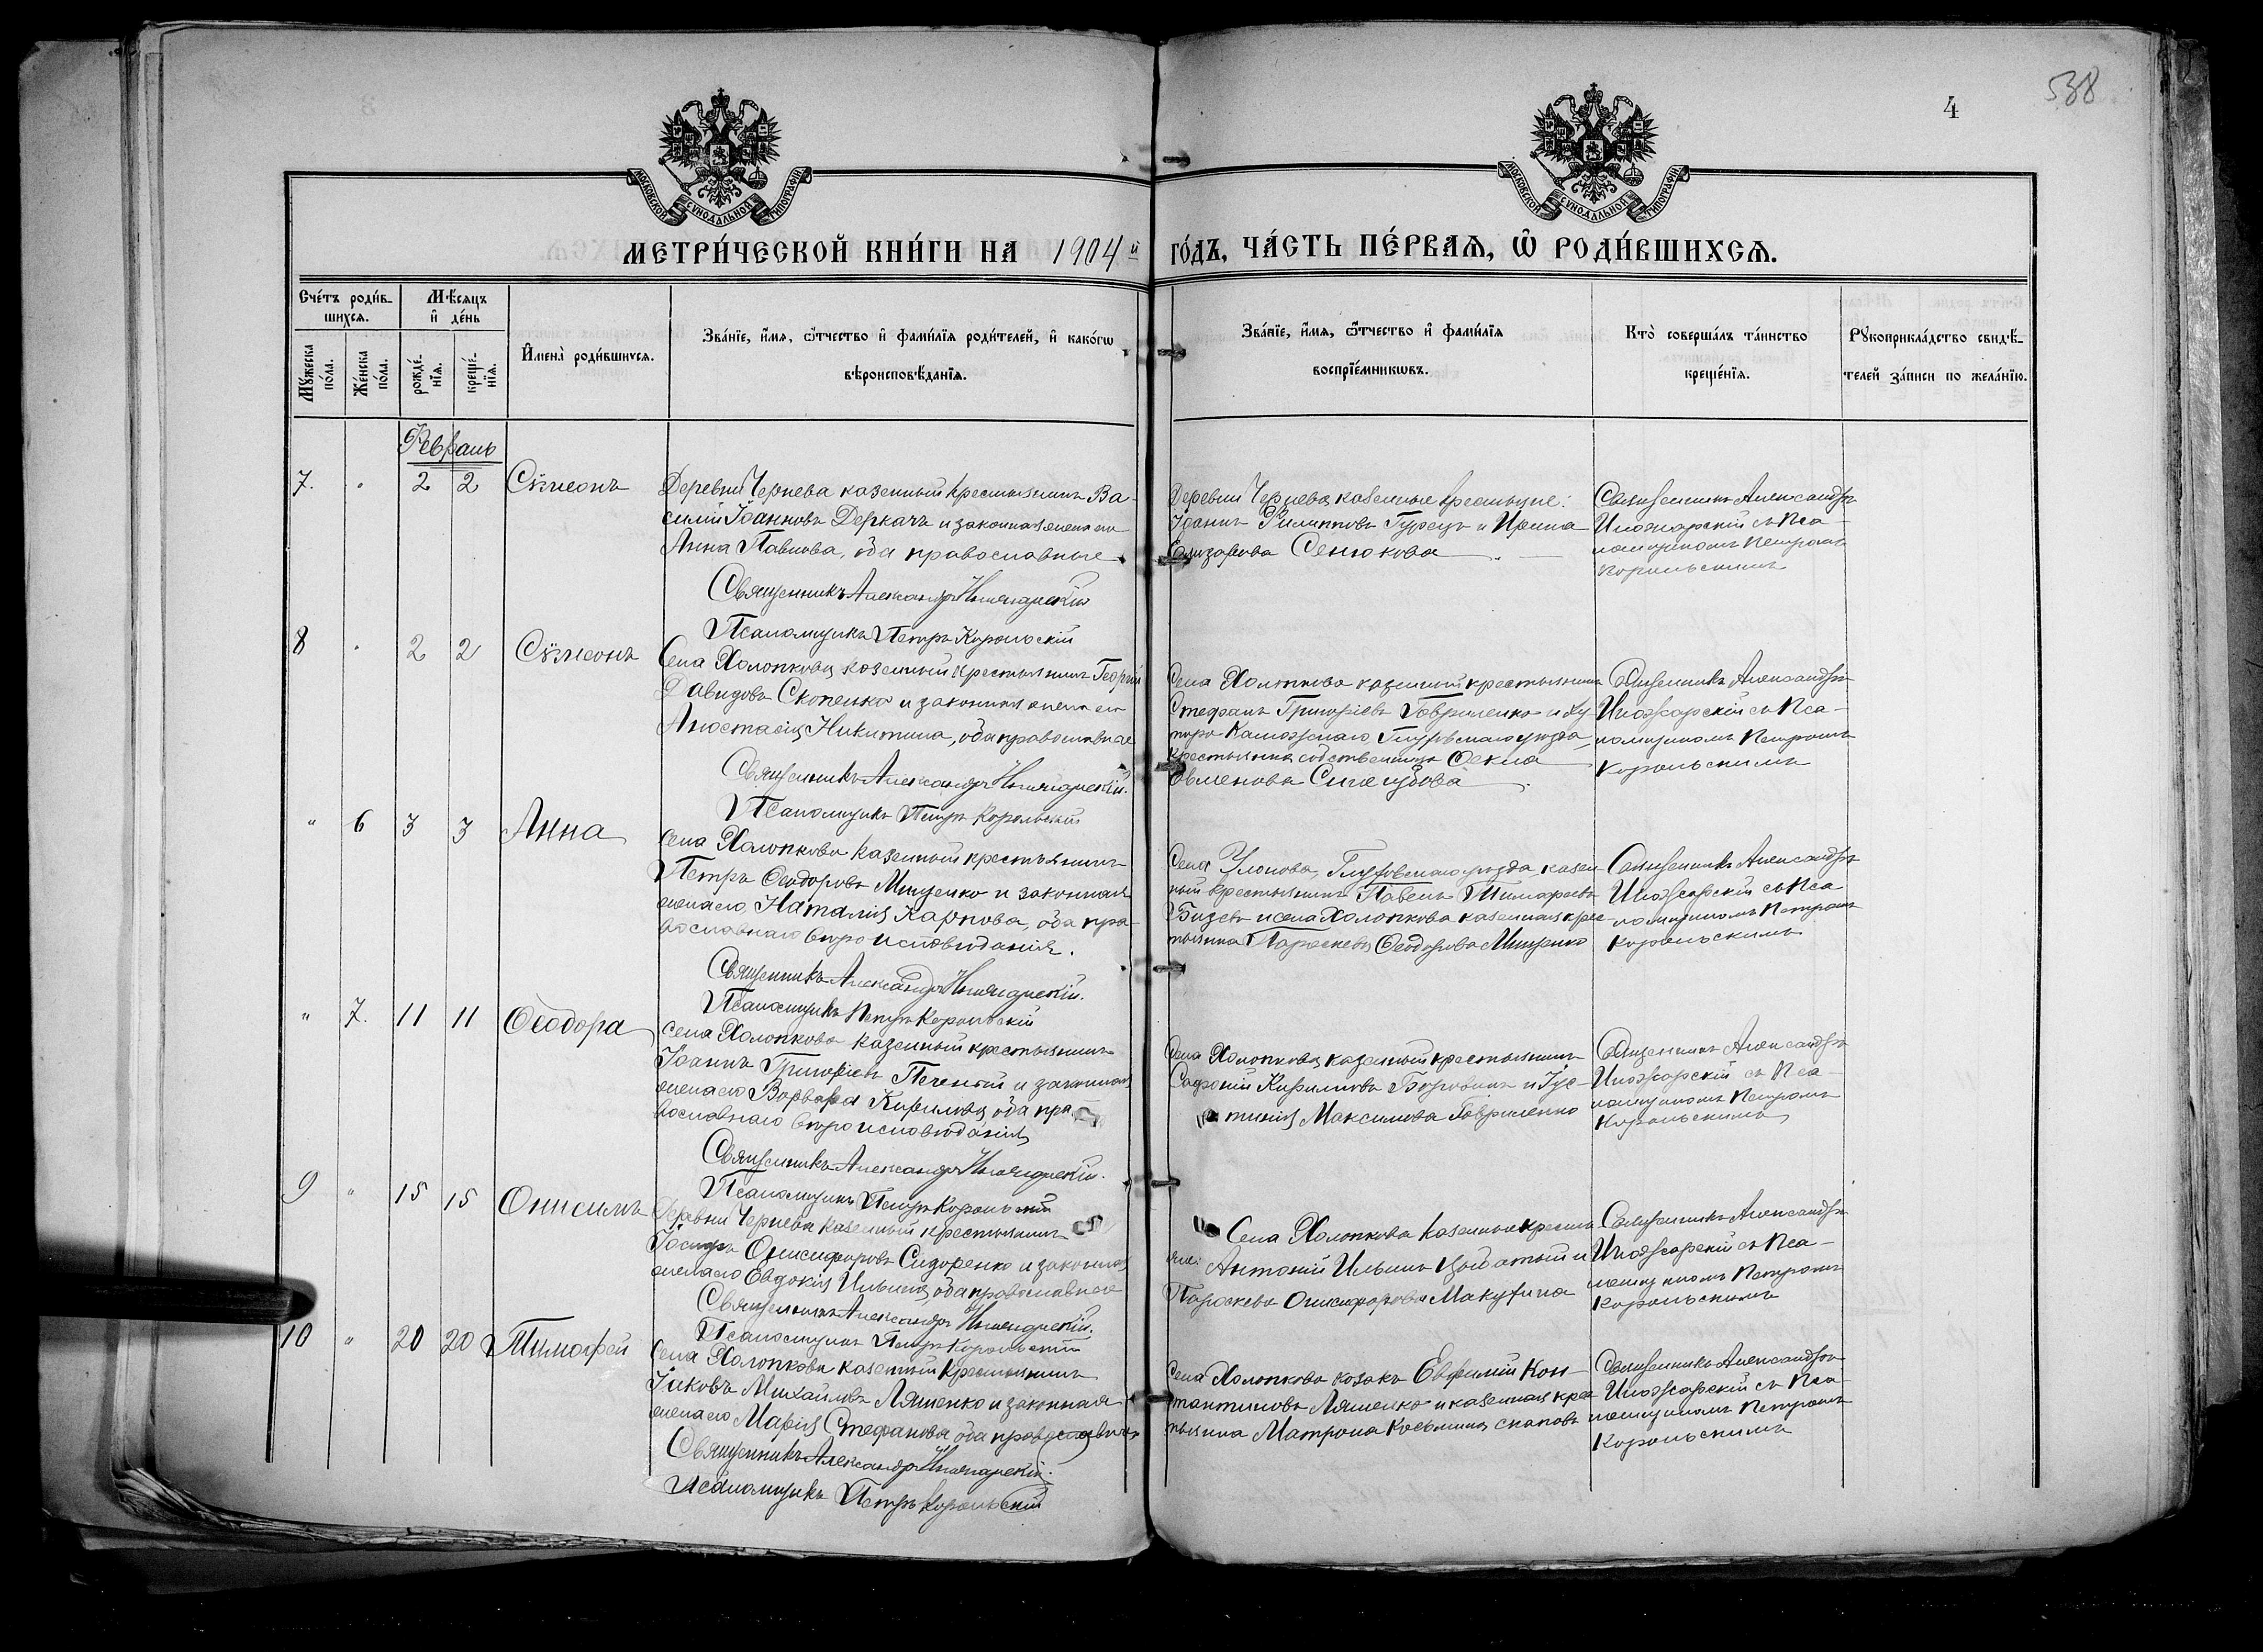 538
4
МОСКОВСКОЙ СУНОДАЛЬНОЙ ТИПОГРАФІИ
МОСКОВСКОЙ СУНОДАЛЬНОЙ ТИПОГРАФІИ
МЕТРИ́ЧЕСКОЙ КНИ́ГИ НА 1904й
ГО́ДЪ, ЧА́СТЬ ПЕ́РВАѦ, Ѿ РОДИ́ВШИХСѦ.
Сче́тъ роди́в-
шихсѧ.
Мѣ́сѧцъ
и҆ де́нь
Мꙋ́жеска по́ла.
Же́нска по́ла.
рожде́-
нїѧ.
креще́-
нїѧ.
И҆мена̀ роди́вшихсѧ.
Зва́нїе, и҆́мѧ, ѻ҆́тчество и҆ фами́лїѧ роди́телей, и҆ како́гѡ
вѣроисповѣ́данїѧ.
Зва́нїе, и҆́мѧ, ѻ҆́тчество и҆ фами́лїѧ
воспрїе́мникѡвъ.
Кто̀ соверша́лъ та́инство
креще́нїѧ.
Рꙋкоприкла́дство свидѣ́-
телей за́писи по жела́нїю.
Февраль
7. " 2 2 Сѵмеонъ
Деревни Чернева казенный крестьянинъ Ва-
силій Іоанновъ Деркачъ и законная жена его
Анна Павлова, оба православные
Священникъ Александръ
Псаломщикъ Петръ Корольскій
Деревни Чернева казенные крестьяне:
Іоаннъ Филипповъ Гурецъ и Ирина
Елизарова Сенюкова
Священникъ Александръ
съ Пса-
ломщикомъ Петромъ
Корольскимъ
8 " 2 2 Сѵмеонъ
Села Холопкова казенный крестьянинъ Георгій
Давидовъ Скопенко и законная жена его
Анастасія Никитина, оба православные
Священникъ Александръ
Псаломщикъ Петръ Корольскій
Села Холопкова казенный крестьянинъ
Стефанъ Григоріевъ Гавриленко и ху-
тора Глуховскаго уѣзда,
крестьянка собственница Ѳекла
Священникъ Александръ
съ Пса-
ломщикомъ Петромъ
Корольскимъ
" 6 3 3 Анна
Села Холопкова казенный крестьянинъ
Петръ Ѳеодоровъ Мищенко и законная
жена его Наталія Карпова, оба пра-
вославнаго вѣроисповѣданія.
Священникъ Александръ
Псаломщикъ Петръ Корольскій
Села Уланова, Глуховскаго уѣзда, казен-
ный крестьянинъ Павелъ
и села Холопкова казенная крес-
тьянка Параскева Ѳеодорова Мищенко
Священникъ Александръ
съ Пса-
ломщикомъ Петромъ
Корольскимъ
" 7. 11 11 Ѳеодора
Села Холопкова казенный крестьянинъ
Іоаннъ Григоріевъ Печеный и законная
жена его Варвара Кирилова, оба пра-
вославнаго вѣроисповѣданія
Священникъ Александръ
Псаломщикъ Петръ Корольскій
Села Холопкова казенный крестьянинъ
Софроній Кирилловъ и Іус-
тинія Максимова Гавриленко
Священникъ Александръ
съ Пса-
ломщикомъ Петромъ
Корольскимъ
9 " 15 15 Онисимъ
Деревни Чернева казенный крестьянинъ
Іосифъ Онисифоровъ Сидоренко и законная
жена его Евдокія Ильина, оба православные
Священникъ Александръ
Псаломщикъ Петръ Корольскій
Села Холопкова казенные кресть-
яне: Антоній Ильинъ и
Параскева Онисифорова
Священникъ Александръ
съ Пса-
ломщикомъ Петромъ
Корольскимъ
10 " 20 20 Тимофей
Села Холопкова казенный крестьянинъ
Іаковъ Михайловъ Ляшенко и законная
жена его Марія Стефанова оба православные
Священникъ Александръ
Псаломщикъ Петръ Корольскій
Села Холопкова козакъ Евфимій Кон-
стантиновъ Ляшенко и казенная крес-
тьянка Матрона Косьмина
Священникъ Александръ
съ Пса-
ломщикомъ Петромъ
Корольскимъ